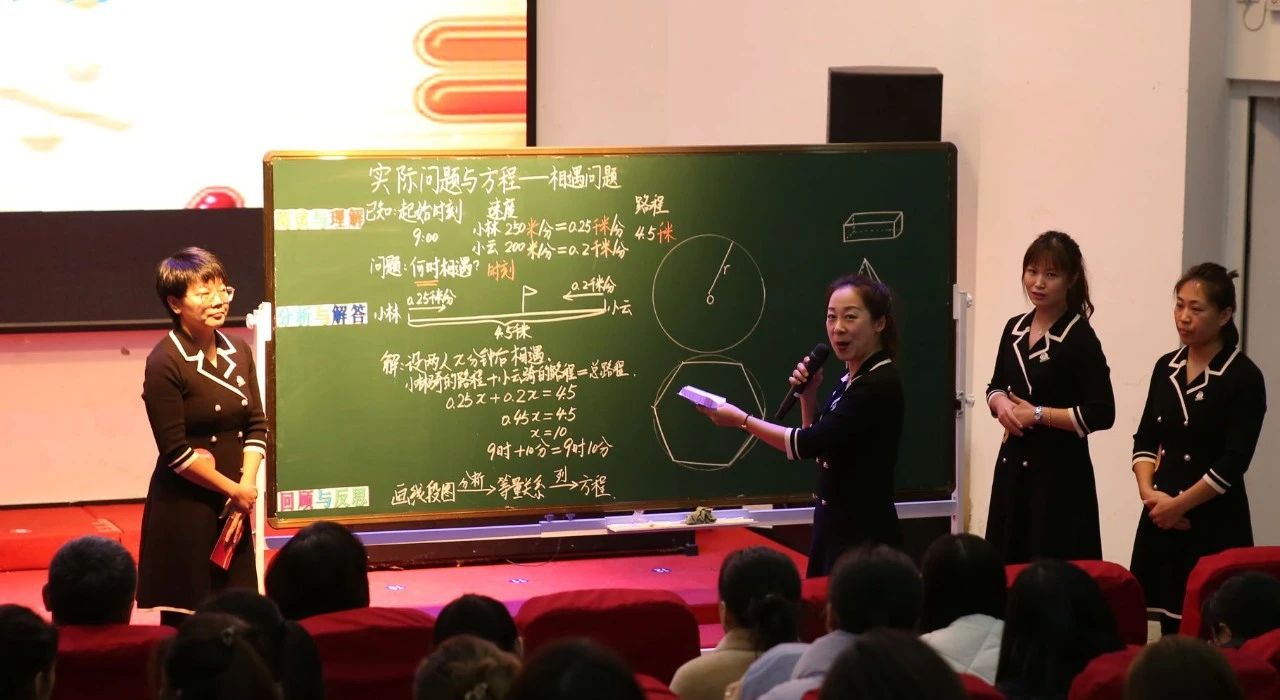 实际问题与方程——相遇问题
阅读与理解
已知:起始时刻 速度 路程
9:00 小林 250米/分=0.25千米/分 4.5千米
小云 200米/分=0.2千米/分
问题:何时相遇? 时刻
分析与解答
0.25千米/分 0.2千米/分
小林 小云
4.5千米
解:设两人x分钟后相遇.
小林骑的路程+小云骑的路程=总路程.
0.25x+0.2x=4.5
0.45x=4.5
x=10
9时+10分=9时10分
回顾与反思
画线段图 分析→ 等量关系 列→ 方程.
r
O